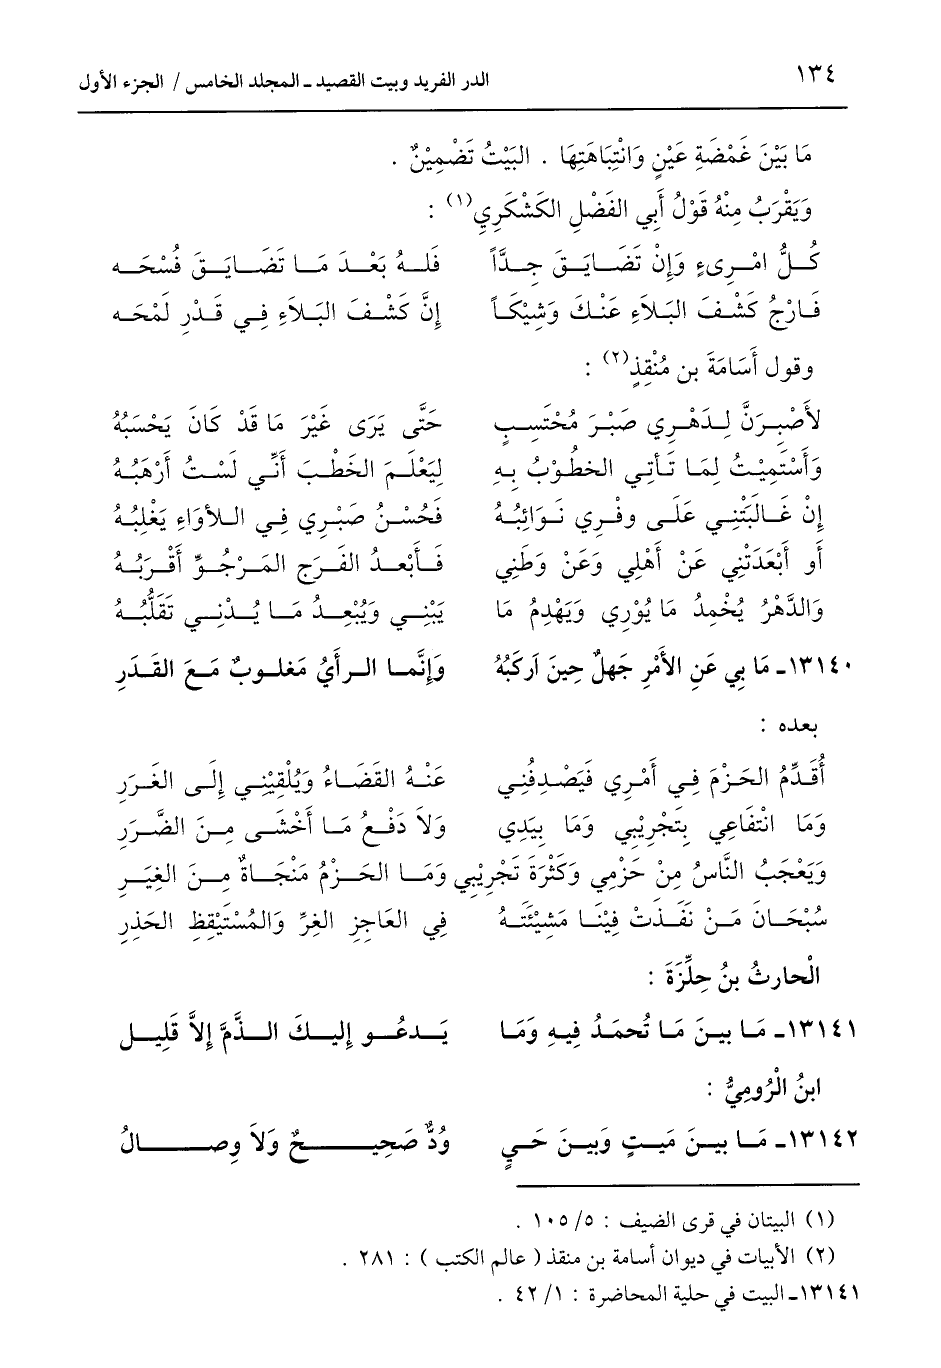 ١٣٤
الدر الفريد وبيت القصيد ـ المجلد الخامس / الجزء الأول
مَا بَيْنَ غَمْضَةِ عَيْنٍ وَانْتِبَاهَتِهَا . البَيْتُ تَضْمِيْنٌ .
وَيَقْرَبُ مِنْهُ قَوْلُ أَبِي الفَضْلِ الكَشْكَرِي(١) :
كُلُّ امْرِىءٍ وَإِنْ تَضَايَقَ جِدَّاً فَلَهُ بَعْدَ مَا تَضَايَقَ فُسْحَه
فَارْجُ كَشْفَ البَلَاءِ عَنْكَ وَشِيْكَاً إِنَّ كَشْفَ البَلَاءِ فِي قَدْرِ لَمْحَه
وقول أُسَامَةَ بن مُنْقِذٍ(٢) :
لأَصْبِرَنَّ لِدَهْرِي صَبْرَ مُحْتَسِبٍ حَتَّى يَرَى غَيْرَ مَا قَدْ كَانَ يَحْسَبُهُ
وَأَسْتَمِيْتُ لِمَا تَأتِي الخطُوْبُ بِهِ لِيَعْلَمَ الخَطْبَ أَنِّي لَسْتُ أَرْهَبُهُ
إِنْ غَالَبَتْنِي عَلَى وفْرِي نَوَائِبُهُ فَحُسْنُ صَبْرِي فِي اللأوَاءِ يَغْلِبُهُ
أو أَبْعَدَتْنِي عَنْ أَهْلِي وَعَنْ وَطَنِي فَأَبْعدُ الفَرَجِ المَرْجُوِّ أَقْرَبُهُ
وَالدَّهْرُ يُخْمِدُ مَا يُوْرِي وَيَهْدِمُ مَا يَبْنِي وَيُبْعِدُ مَا يُدْنِي تَقَلُّبُهُ
١٣١٤٠ـ مَا بِي عَنِ الأمْرِ جَهلٌ حِينَ أركَبُهُ وَإِنَّما الرأيُ مَغلوبٌ مَعَ القَدَرِ
بعده :
أُقَدِّمُ الحَزْمَ فِي أَمْرِي فَيَصْدِفُنِي عَنْهُ القَضَاءُ وَيُلْقِيْنِي إِلَى الغَرَرِ
وَمَا انْتفَاعِي بِتَجْرِيْبِي وَمَا بِيَدِي وَلَا دَفْعُ مَا أَخْشَى مِنَ الضَّرَرِ
وَيَعْجَبُ النَّاسُ مِنْ حَزْمِي وَكَثْرَةَ تَجْرِيْبِي وَمَا الحَزْمُ مَنْجَاةٌ مِنَ الغِيَرِ
سُبْحَانَ مَنْ نَفَذَتْ فِيْنَا مَشِيْئَتَهُ فِي العَاجِزِ الغِرِّ وَالمُسْتَيْقِظِ الحَذِرِ
الْحارثُ بنُ حِلِّزَةَ :
١٣١٤١ـ مَا بينَ مَا تُحمَدُ فِيهِ وَمَا يَدعُو إِليكَ الذَّمَّ إِلاَّ قَلِيل
ابنُ الْرُومِيُّ :
١٣١٤٢ـ مَا بينَ مَيتٍ وَبينَ حَيٍ وُدٌّ صَحِيحٌ وَلَا وِصَالُ
(١) البيتان في قرى الضيف : ٥/ ١٠٥ .
(٢) الأبيات في ديوان أسامة بن منقذ ( عالم الكتب ) : ٢٨١ .
١٣١٤١ـ البيت في حلية المحاضرة : ١/ ٤٢ .